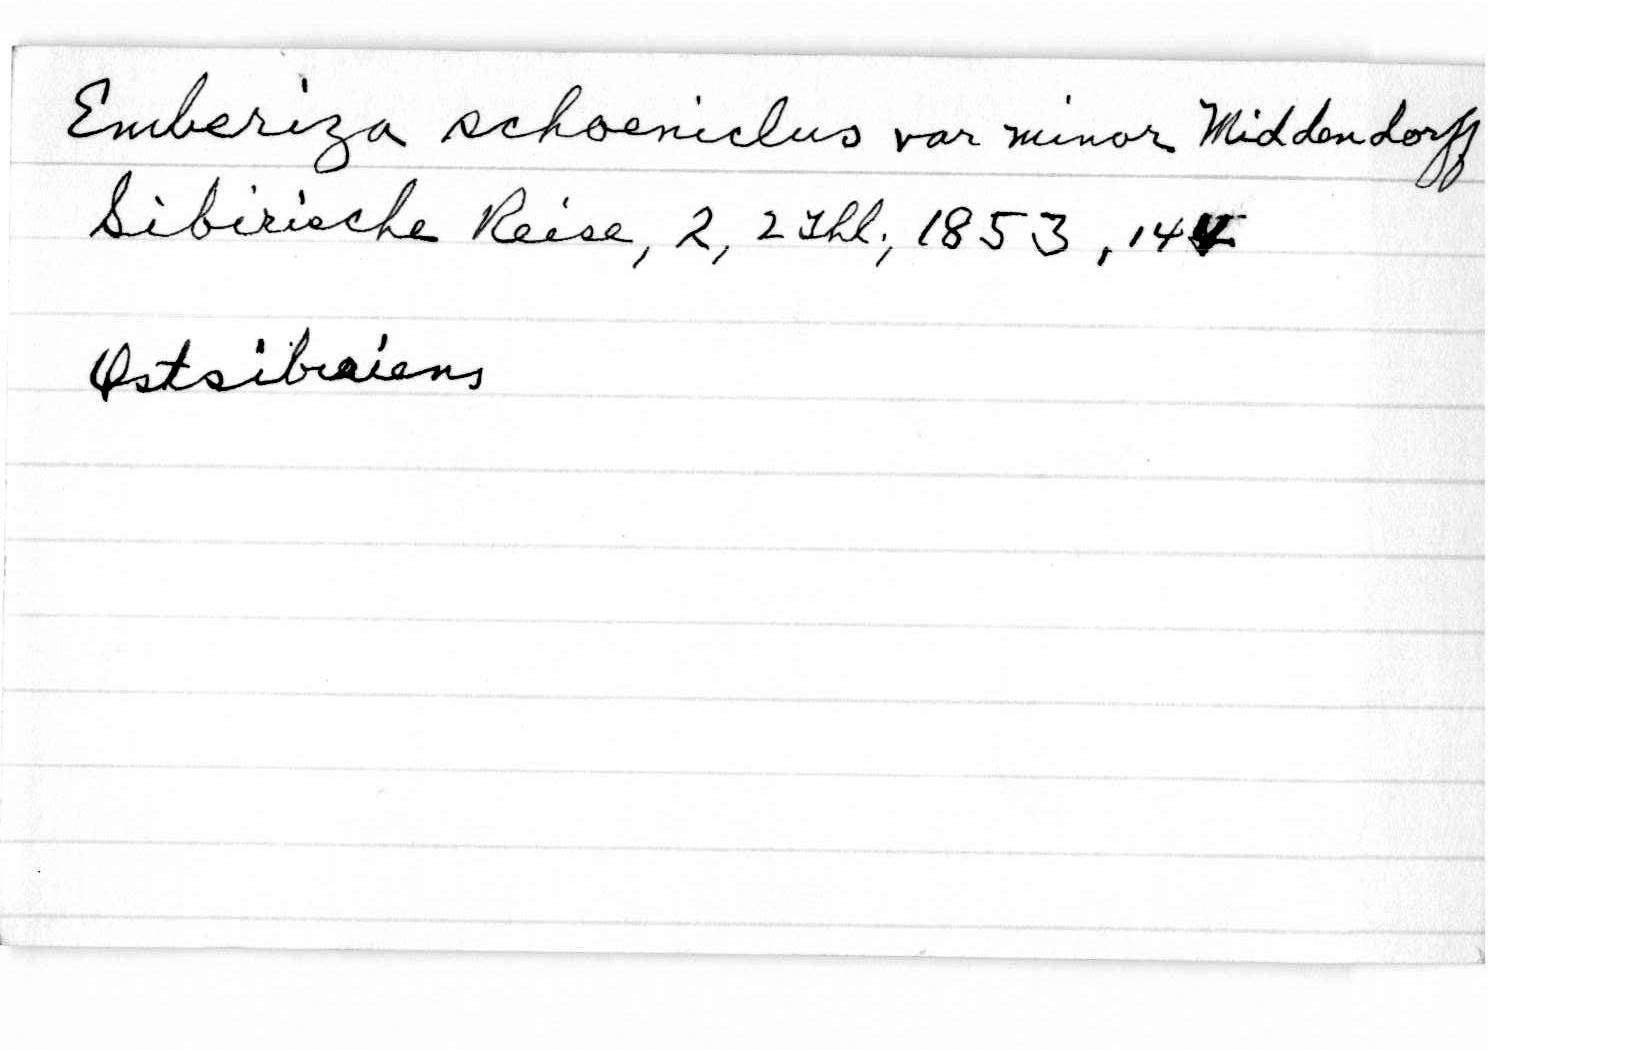 Emberiza schoeniclus var minor Middendorff
Sibirische Reise, 2, 2 Thl., 1853,
Ostsibiriens